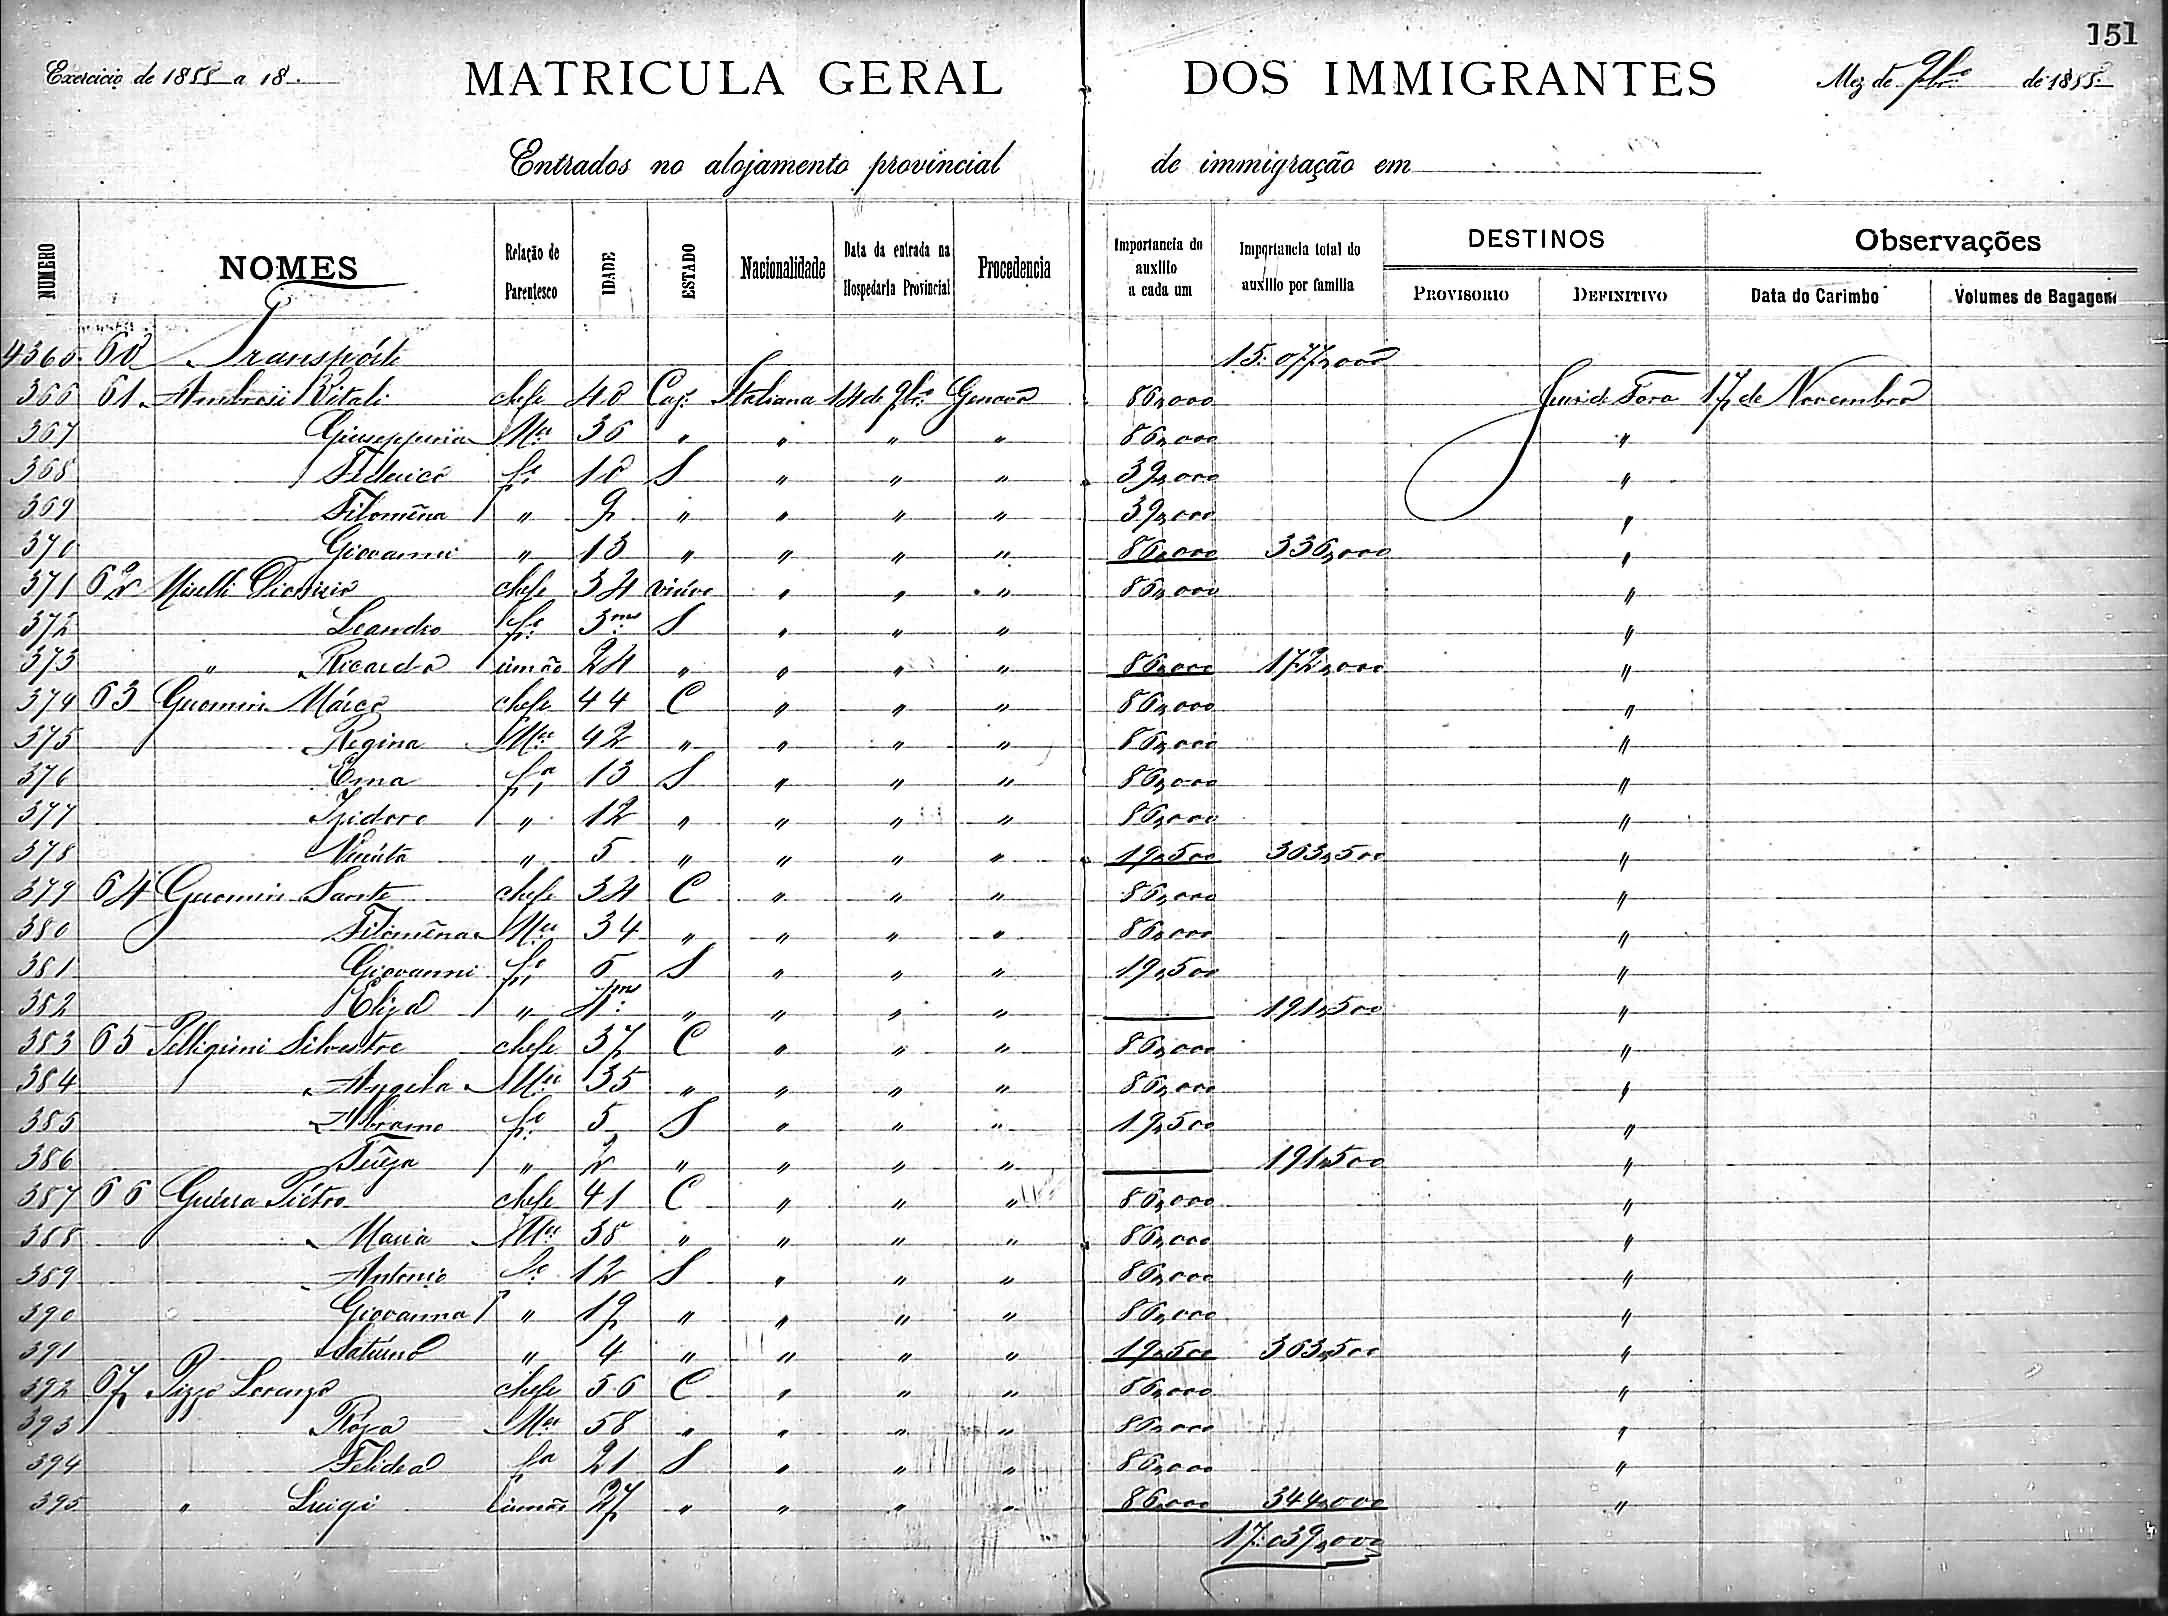 151
Exercicio de 1888 a 18
MATRICULA GERAL DOS IMMIGRANTES
Mez de 9bro de 1888
Entrados no alojamento provincial de immigração em
NUMERO NOMES Relação de Parentesco IDADE ESTADO Nacionalidade Data da entrada na Hospedaria Provincial Procedencia Importancia do auxilio a cada um Importancia total do auxilio por familia DESTINOS PROVISORIO DEFINITIVO Observações Data do Carimbo Volumes de Bagagem
4365 60 Transpórte 15:077,000
366 61 Ambrosi Vitali chefe 40 Caz. Italiana 14 de 9bro Genova 86,000 Juiz de Fora 17 de Novembro
367 Giuseppina Mer 36 " " " " 86,000 "
368 Federico fo 10 S " " " 39,000 "
369 Filomena " 9 " " " " 39,000 "
370 Giovanni " 13 " " " " 86,000 336,000 "
371 62 chefe 34 viúvo " " " 86,000 "
372 Leandro fo 3ms S " " " "
373 " Ricardo irmão 24 " " " " 86,000 172,000 "
374 63 Guomin Márco chefe 44 C " " " 86,000 "
375 Regina Mer 42 " " " " 86,000 "
376 Ema fa 13 S " " " 86,000 "
377 Izidoro " 12 " " " " 86,000 "
378 " 5 " " " " 19,500 363,500 "
379 64 Guomin Sante chefe 34 C " " " 86,000 "
380 Filomena Mer 34 " " " " 86,000 "
381 Giovanni fo 5 S " " " 19,500 "
382 Eliza " " " " " 191,500 "
383 65 Pelligrini Silvestre chefe 37 C " " " 86,000 "
384 Angela Mer 35 " " " " 86,000 "
385 Abramo fo 5 S " " " 19,500 "
386 " 2 " " " " 191,500 "
387 66 Guérra Piétro chefe 41 C " " " 86,000 "
388 Maria Mer 38 " " " " 86,000 "
389 Antonio fo 12 S " " " 86,000 "
390 Giovanna " 19 " " " " 86,000 "
391 " 4 " " " " 19,500 363,500 "
392 67 Pizzo Lorenzo chefe 56 C " " " 86,000 "
393 Roza Mer 58 " " " " 86,000 "
394 fa 21 S " " " 86,000 "
395 " Luigi irmão 27 " " " " 86,000 344,000 "
17:039,000